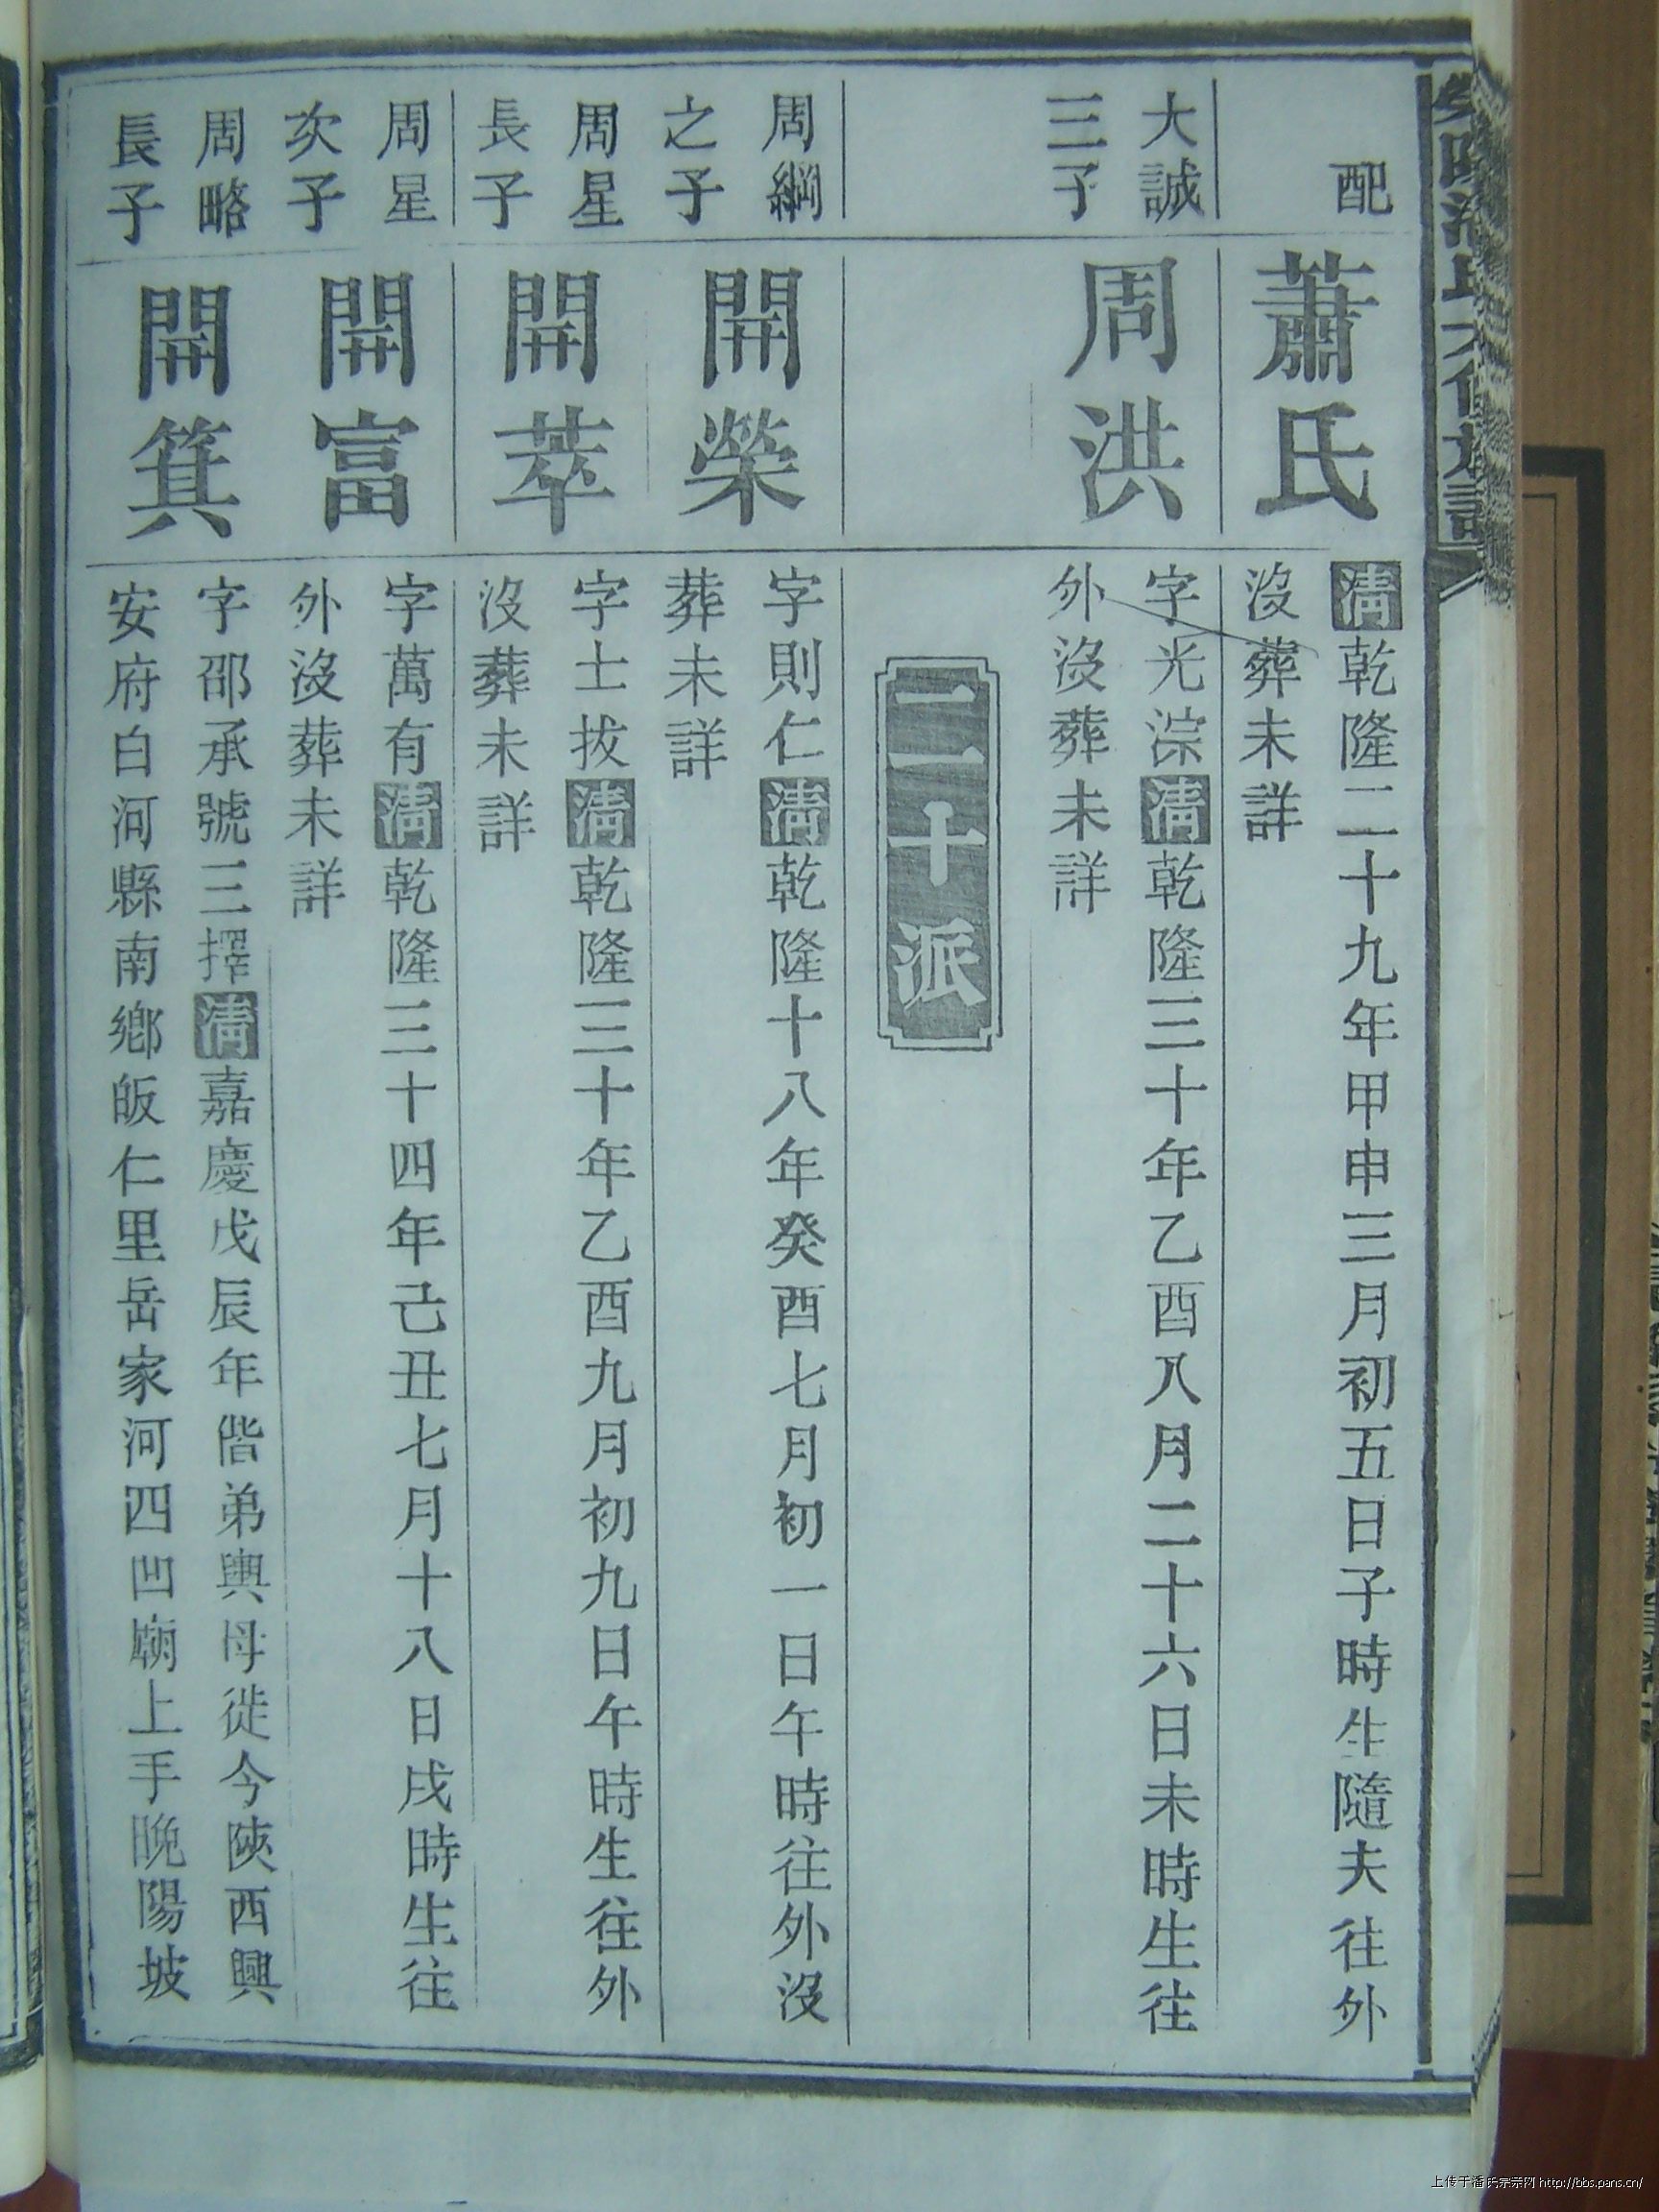 滎陽潘氏六修族譜
配
蕭氏
清乾隆二十九年甲申三月初五日子時生隨夫往外
沒葬未詳
大誠
三子
周洪
字光淙清乾隆三十年乙酉八月二十六日未時生往
外沒葬未詳
二十派
周綱
之子
開榮
字則仁清乾隆十八年癸酉七月初一日午時往外沒
葬未詳
周星
長子
開萃
字士拔清乾隆三十年乙酉九月初九日午時生往外
沒葬未詳
周星
次子
開富
字萬有清乾隆三十四年己丑七月十八日戌時生往
外沒葬未詳
周略
長子
開箕
字邵承號三擇清嘉慶戊辰年偕弟輿母徙今陝西興
安府白河縣南鄉皈仁里岳家河四凹廟上手晚陽坡
上传于潘氏宗亲网 http://bbs.pans.cn/